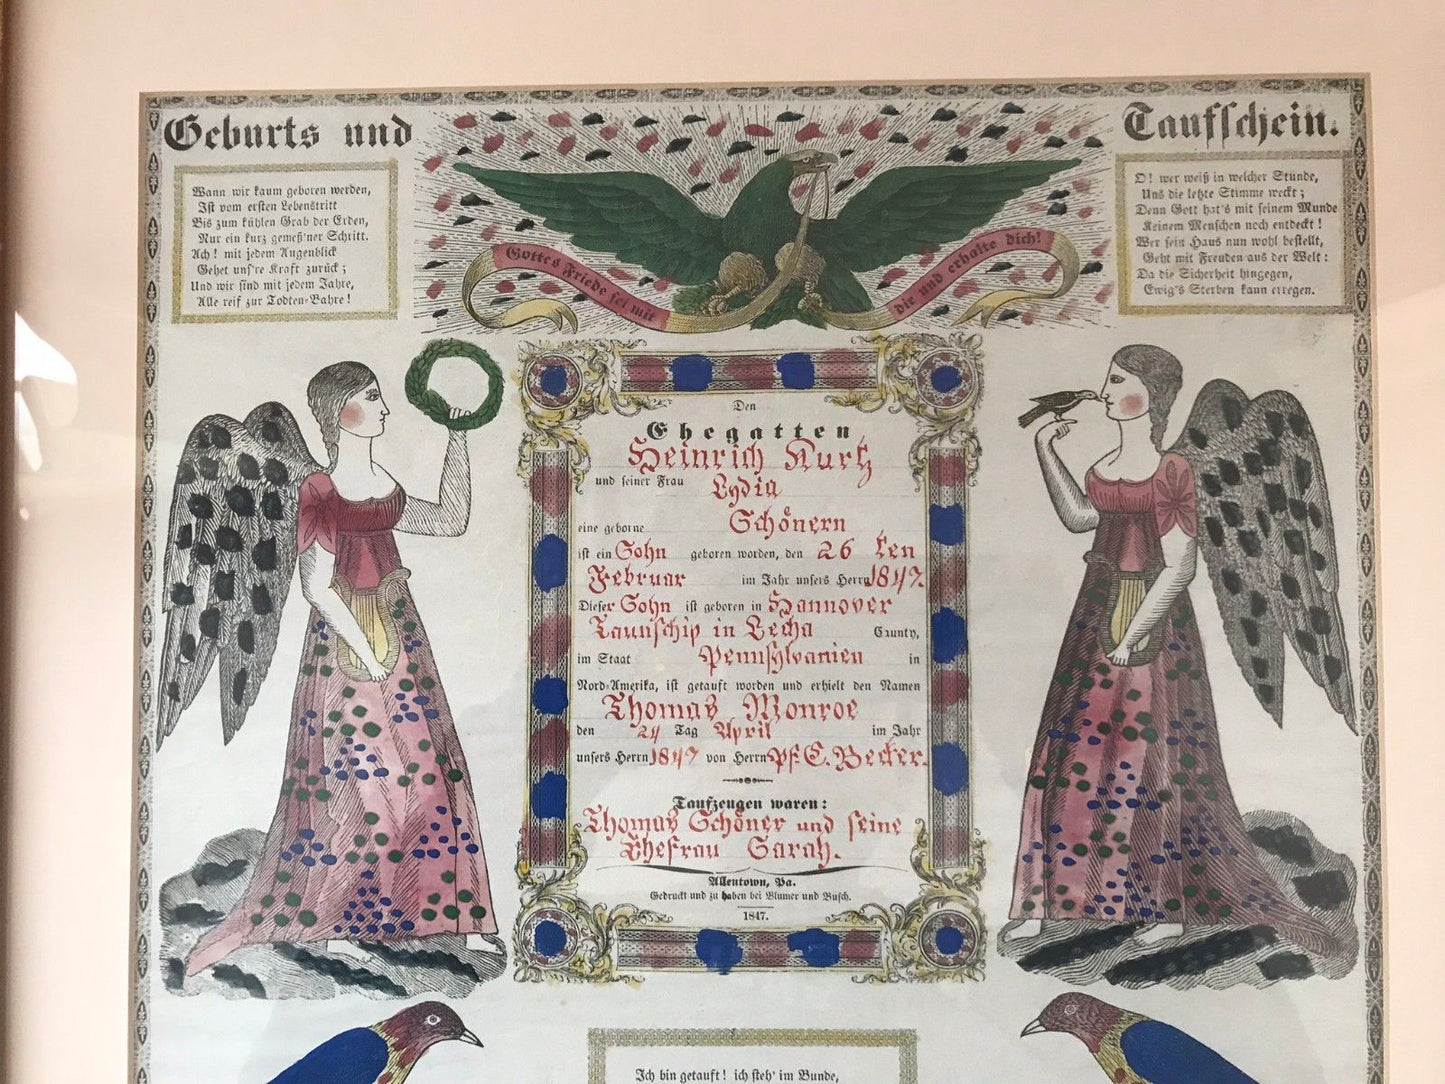 Geburts und Taufschein.
Wann wir kaum geboren werden,
Ist vom ersten Lebenstritt
Bis zum kühlen Grab der Erden,
Nur ein kurz gemeß'ner Schritt.
Ach! mit jedem Augenblick
Gehet uns're Kraft zurück;
Und wir sind mit jedem Jahre,
Alle reif zur Todten-Bahre!
Gottes Friede sei mit dir und erhalte dich!
O! wer weiß in welcher Stunde,
Uns die letzte Stimme weckt;
Denn Gott hat's mit seinem Munde
Keinem Menschen noch entdeckt!
Wer sein Haus nun wohl bestellt,
Geht mit Freuden aus der Welt:
Da die Sicherheit hingegen,
Ewig's Sterben kann erregen.
Den
Ehegatten
Heinrich Kurtz
und seiner Frau Lydia
eine geborne Schönern
ist ein Sohn geboren worden, den 26 ten
Februar im Jahr unsers Herrn 1847.
Dieser Sohn ist geboren in Hannover
Taunschip in Lecha Caunty,
im Staat Pennsylvanien in
Nord-Amerika, ist getauft worden und erhielt den Namen
Thomas Monroe
den 24 Tag April im Jahr
unsers Herrn 1847 von Herrn Pf. C. Becker.
Taufzeugen waren:
Thomas Schöner und seine
Ehefrau Sarah.
Allentown, Pa.
Gedruckt und zu haben bei Blumer und Busch.
1847.
Ich bin getauft! ich steh' im Bunde,